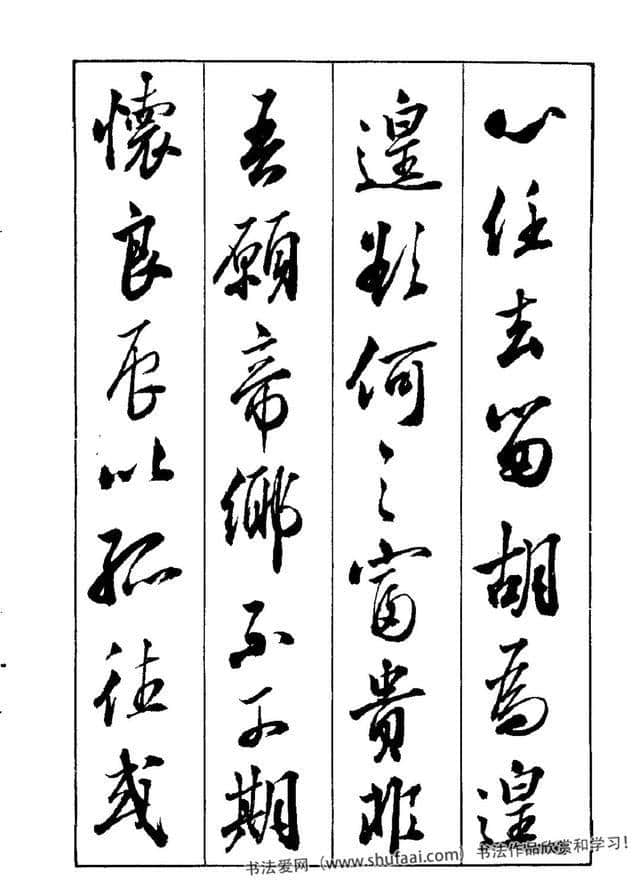 心任去留胡為遑
遑欲何之富貴非
吾願帝鄉不可期
懷良辰以孤往或
书法爱网（www.shufaai.com）书法作品欣赏和学习！